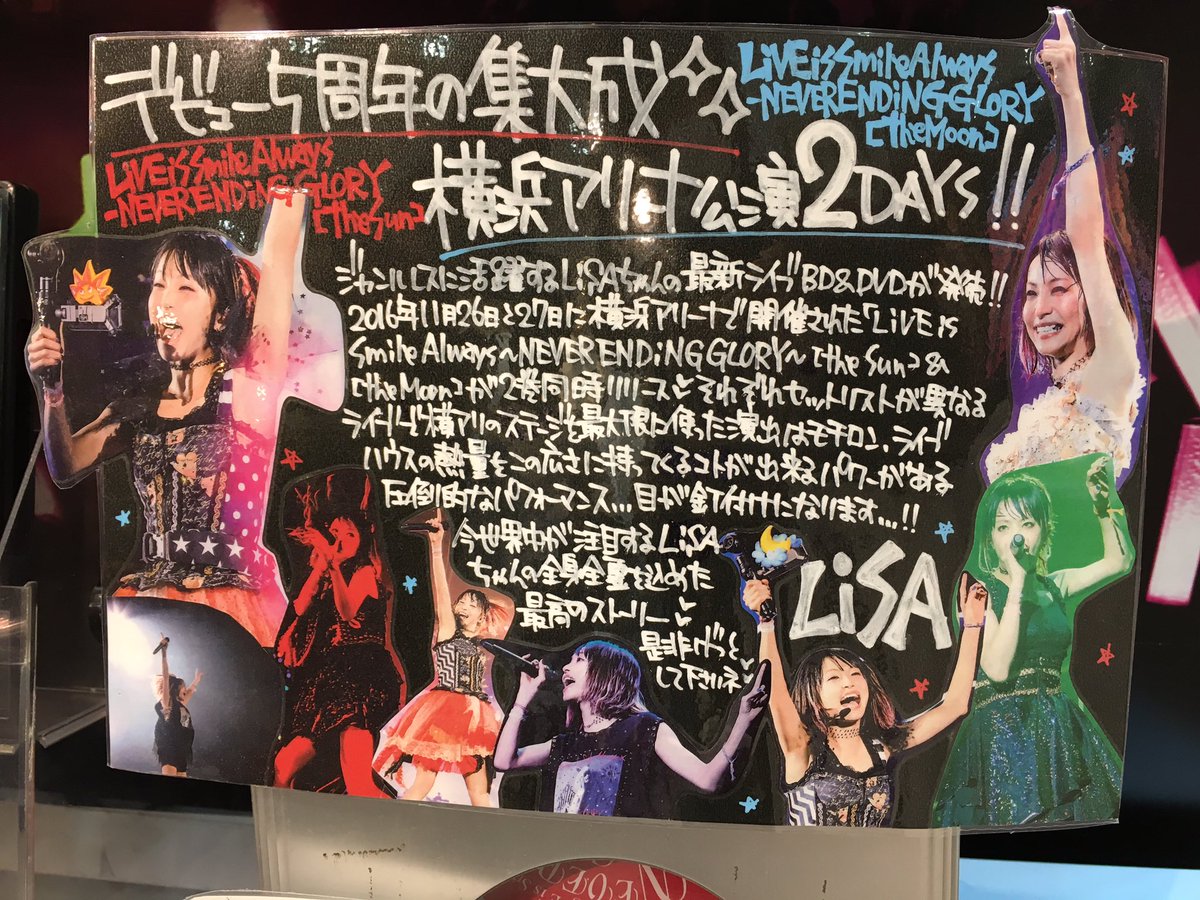 デビュー5周年の集大成
LiVE is Smile Always
-NEVER ENDiNG GLORY
[the Moon]
LiVE is Smile Always
-NEVER ENDiNG GLORY
[the Sun]
横浜アリーナ公演2DAYS!!
ジャンルレスに活躍するLiSAちゃんの最新ライブBD&DVDが発売!!
2016年11月26日と27日に横浜アリーナで開催された「LiVE is
Smile Always〜NEVER ENDiNG GLORY〜[the Sun]&
[the Moon]が2巻同時リリース♥それぞれセットリストが異なる
ライブで横アリのステージを最大限に使った演出はモチロン、ライブ
ハウスの熱量をこの広さに持ってくるコトが出来るパワーがある
圧倒的なパフォーマンス...目が釘付けになります...!!
今世界中が注目するLiSA
ちゃんの全身全霊を込めた
最高のストーリー♥
是非ゲットを
して下さいネ♥
LiSA